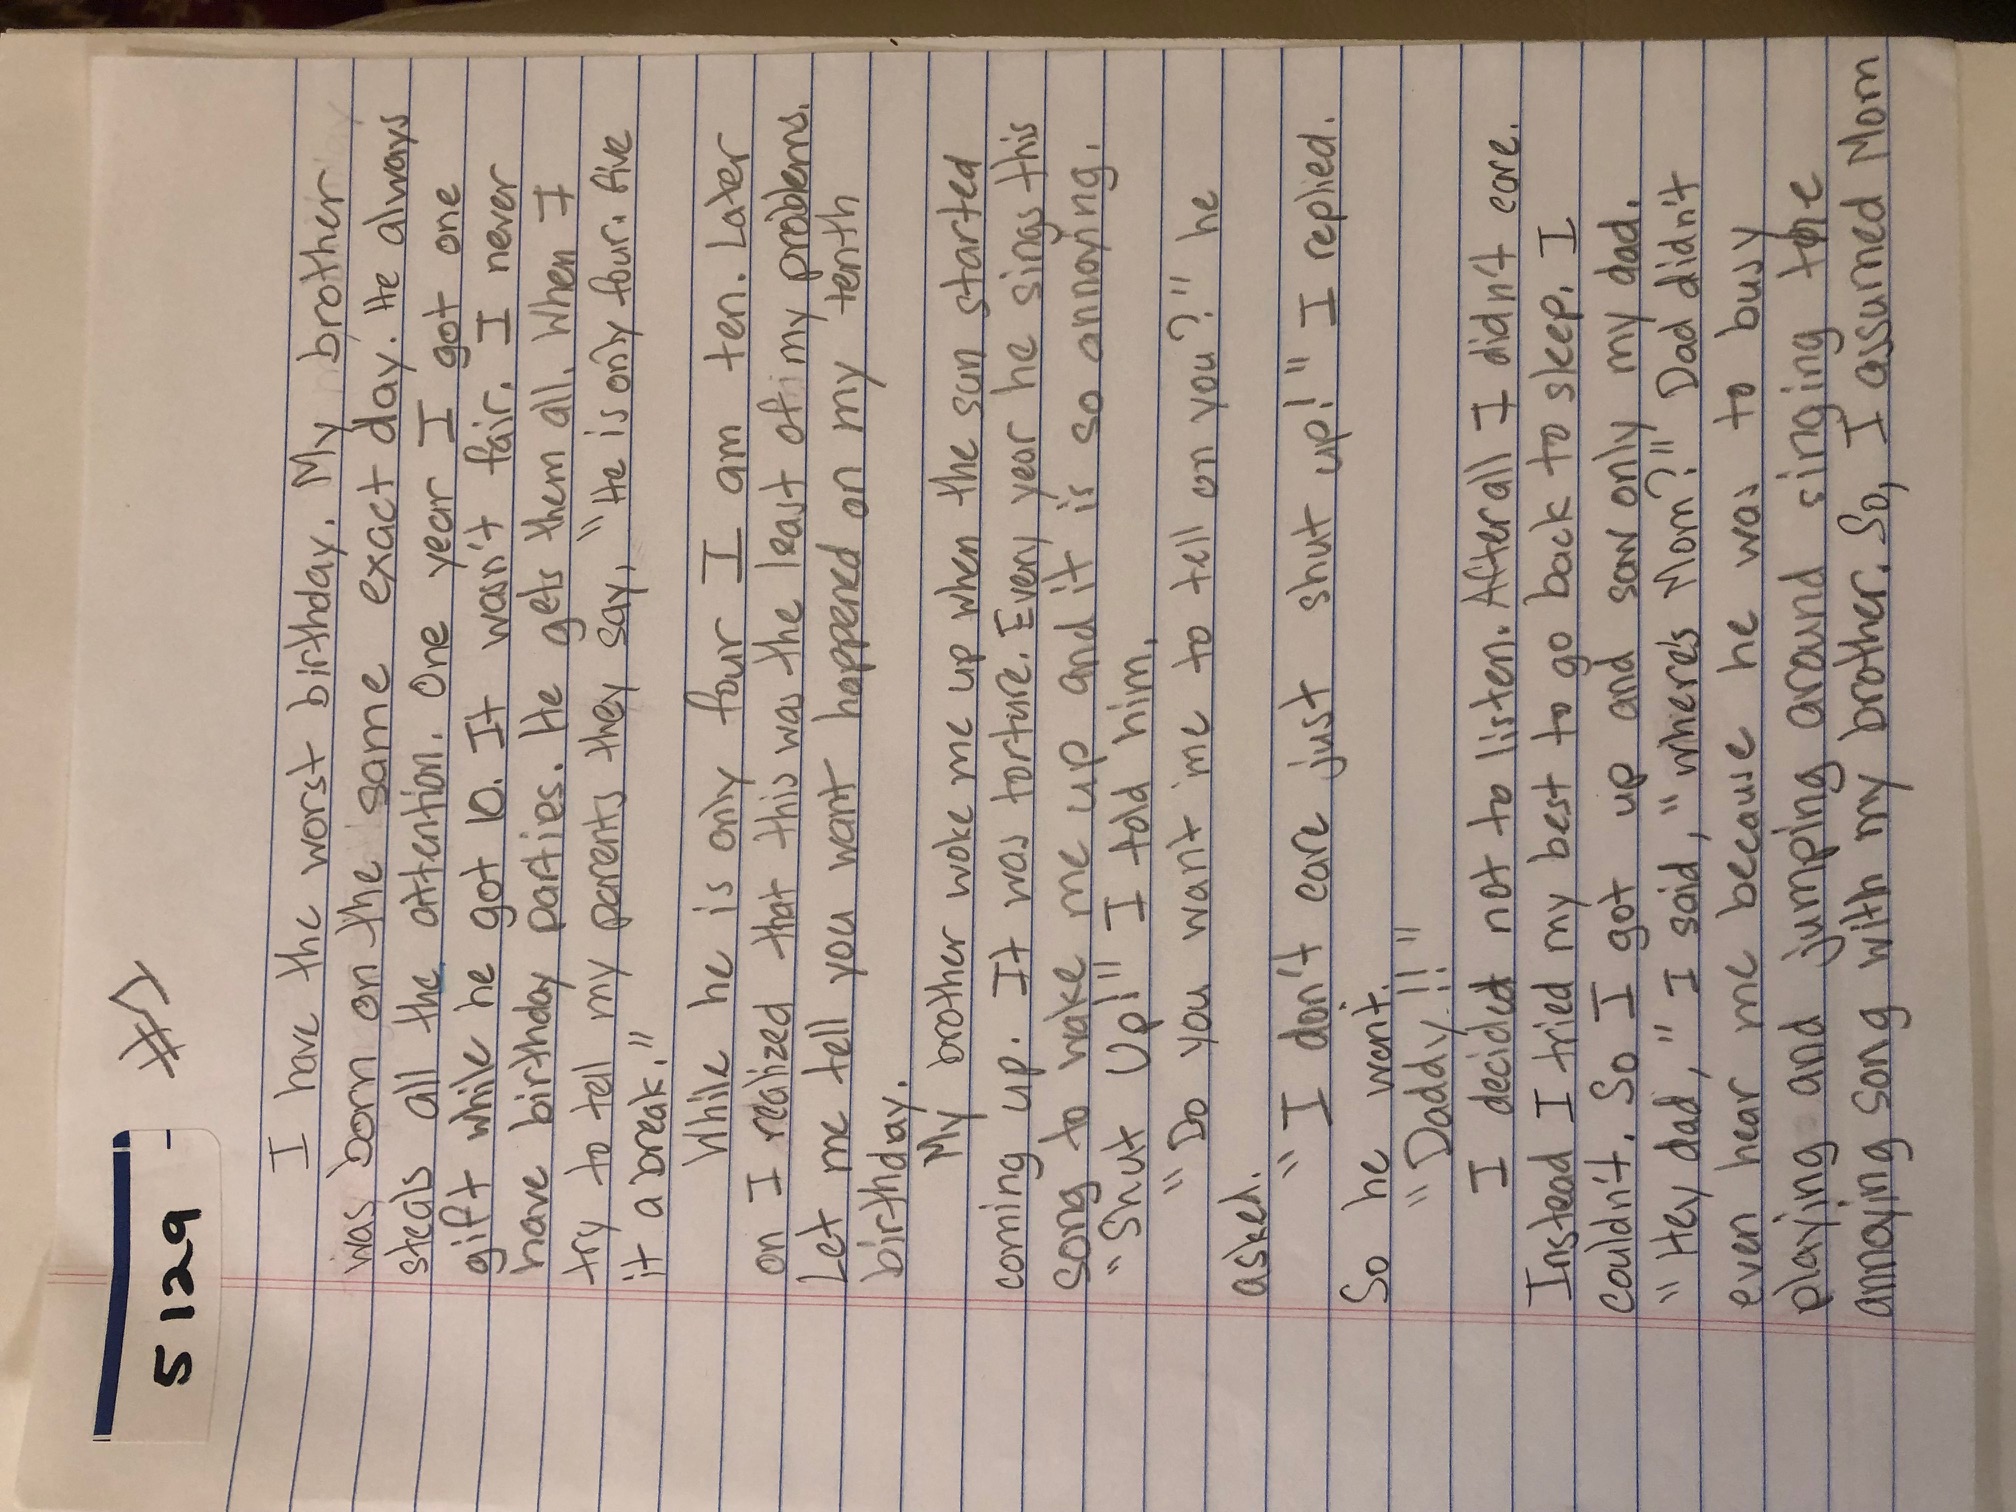 5129
#1
I have the worst birthday. My brother
was born on the same exact day. He always
steals all the attention. One year I got one
gift while he got 10. It wasn't fair. I never
have birthday parties. He gets them all. When I
try to tell my parents they say, "He is only four. Give
it a break."
While he is only four I am ten. Later
on I realized that this was the least of my problems.
Let me tell you want happened on my tenth
birthday.
My brother woke me up when the sun started
coming up. It was torture. Every year he sings this
song to wake me up and it is so annoying.
"Shut Up!" I told him.
"Do you want me to tell on you?" he
asked.
"I don't care just shut up!" I replied.
So he went.
"Daddy!!"
I decided not to listen. After all I didn't care.
Instead I tried my best to go back to sleep. I
couldn't. So I got up and saw only my dad.
"Hey dad," I said, "where's Mom?" Dad didn't
even hear me because he was to busy
playing and jumping around singing the
annoying song with my brother. So, I assumed Mom